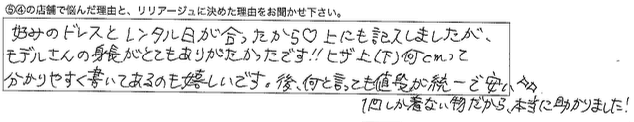 ⑤④の店舗で悩んだ理由と、リリアージュに決めた理由をお聞かせ下さい。
好みのドレスとレンタル日が合ったから♡上にも記入しましたが、
モデルさんの身長がとてもありがたかったです!!ヒザ上(下)何cmって
分かりやすく書いてあるのも嬉しいです。後、何と言っても値段が統一で安い☆☆
1回しか着ない物だから、本当に助かりました!